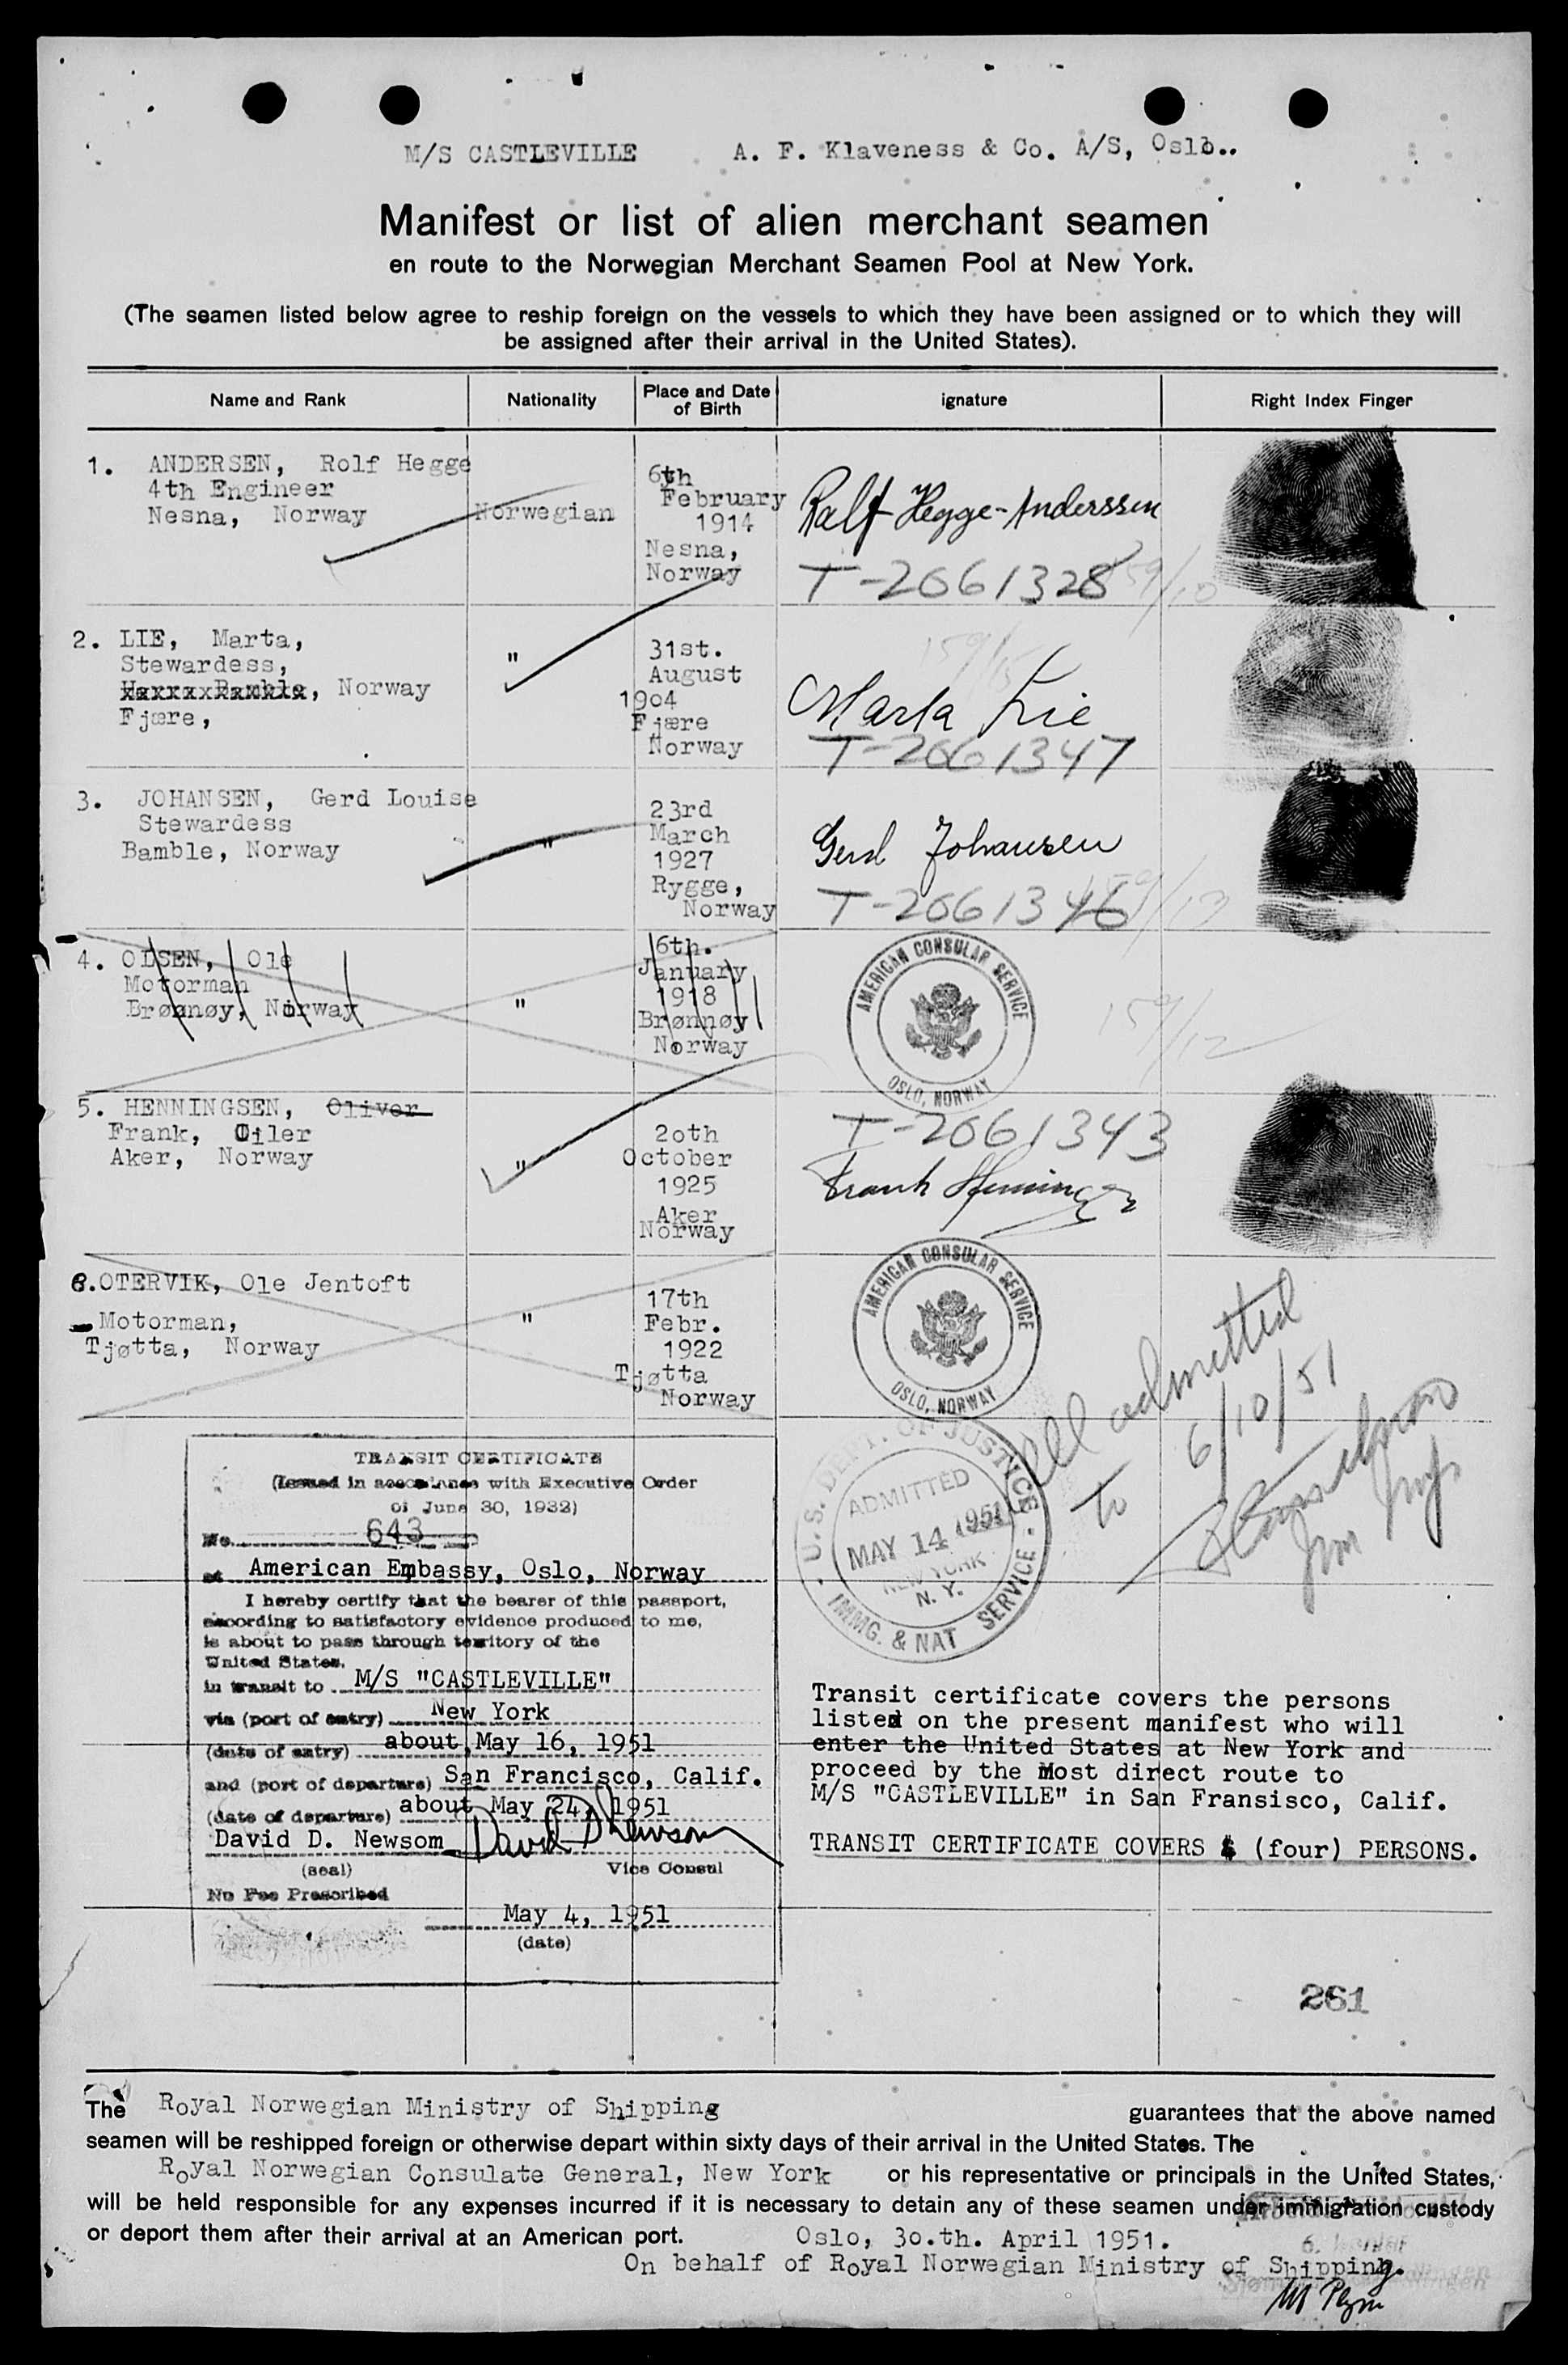 M/S CASTLEVILLE A. F. Klaveness & Co. A/S, Oslo..
Manifest or list of alien merchant seamen
en route to the Norwegian Merchant Seamen Pool at New York.
(The seamen listed below agree to reship foreign on the vessels to which they have been assigned or to which they will
be assigned after their arrival in the United States).
Name and Rank Nationality Place and Date of Birth ignature Right Index Finger
1. ANDERSEN, Rolf Hegge
4th Engineer
Nesna, Norway
Norwegian
6th
February
1914
Nesna,
Norway
Ralf Hegge-Anderssen
T-2061328
159/10
2. LIE, Marta,
Stewardess,
Norway
Fjære,
"
31st.
August
1904
Fjære
Norway
159/15
Marta Lie
T-2061347
3. JOHANSEN, Gerd Louise
Stewardess
Bamble, Norway
"
23rd
March
1927
Rygge,
Norway
Gerd Johansen
T-2061346
159/13
4. OLSEN, Ole
Motorman
Brønnøy, Norway
"
6th.
January
1918
Brønnøy
Norway
AMERICAN CONSULAR SERVICE
OSLO, NORWAY
159/12
5. HENNINGSEN, Oliver
Frank, Oiler
Aker, Norway
"
20th
October
1925
Aker
Norway
T-2061343
Frank Henningsen
6. OTERVIK, Ole Jentoft
Motorman,
Tjøtta, Norway
"
17th
Febr.
1922
Tjøtta
Norway
AMERICAN CONSULAR SERVICE
OSLO, NORWAY
All admitted
to 6/10/51
U. S. DEPT. OF JUSTICE
ADMITTED
MAY 14 1951
NEW YORK
N. Y.
IMMG. & NAT SERVICE
TRANSIT CERTIFICATE
(Issued in accordance with Executive Order
of June 30, 1932)
No. 643
at American Embassy, Oslo, Norway
I hereby certify that the bearer of this passport,
according to satisfactory evidence produced to me,
is about to pass through territory of the
United States,
in transit to M/S "CASTLEVILLE"
via (port of entry) New York
(date of entry) about May 16, 1951
and (port of departure) San Francisco, Calif.
(date of departure) about May 24, 1951
David D. Newsom David D Newsom
(seal) Vice Consul
No Fee Prescribed
May 4, 1951
(date)
Transit certificate covers the persons
listed on the present manifest who will
enter the United States at New York and
proceed by the most direct route to
M/S "CASTLEVILLE" in San Fransisco, Calif.
TRANSIT CERTIFICATE COVERS 4 (four) PERSONS.
261
The Royal Norwegian Ministry of Shipping guarantees that the above named
seamen will be reshipped foreign or otherwise depart within sixty days of their arrival in the United States. The
Royal Norwegian Consulate General, New York or his representative or principals in the United States,
will be held responsible for any expenses incurred if it is necessary to detain any of these seamen under immigration custody
or deport them after their arrival at an American port. Oslo, 30.th. April 1951.
On behalf of Royal Norwegian Ministry of Shipping.